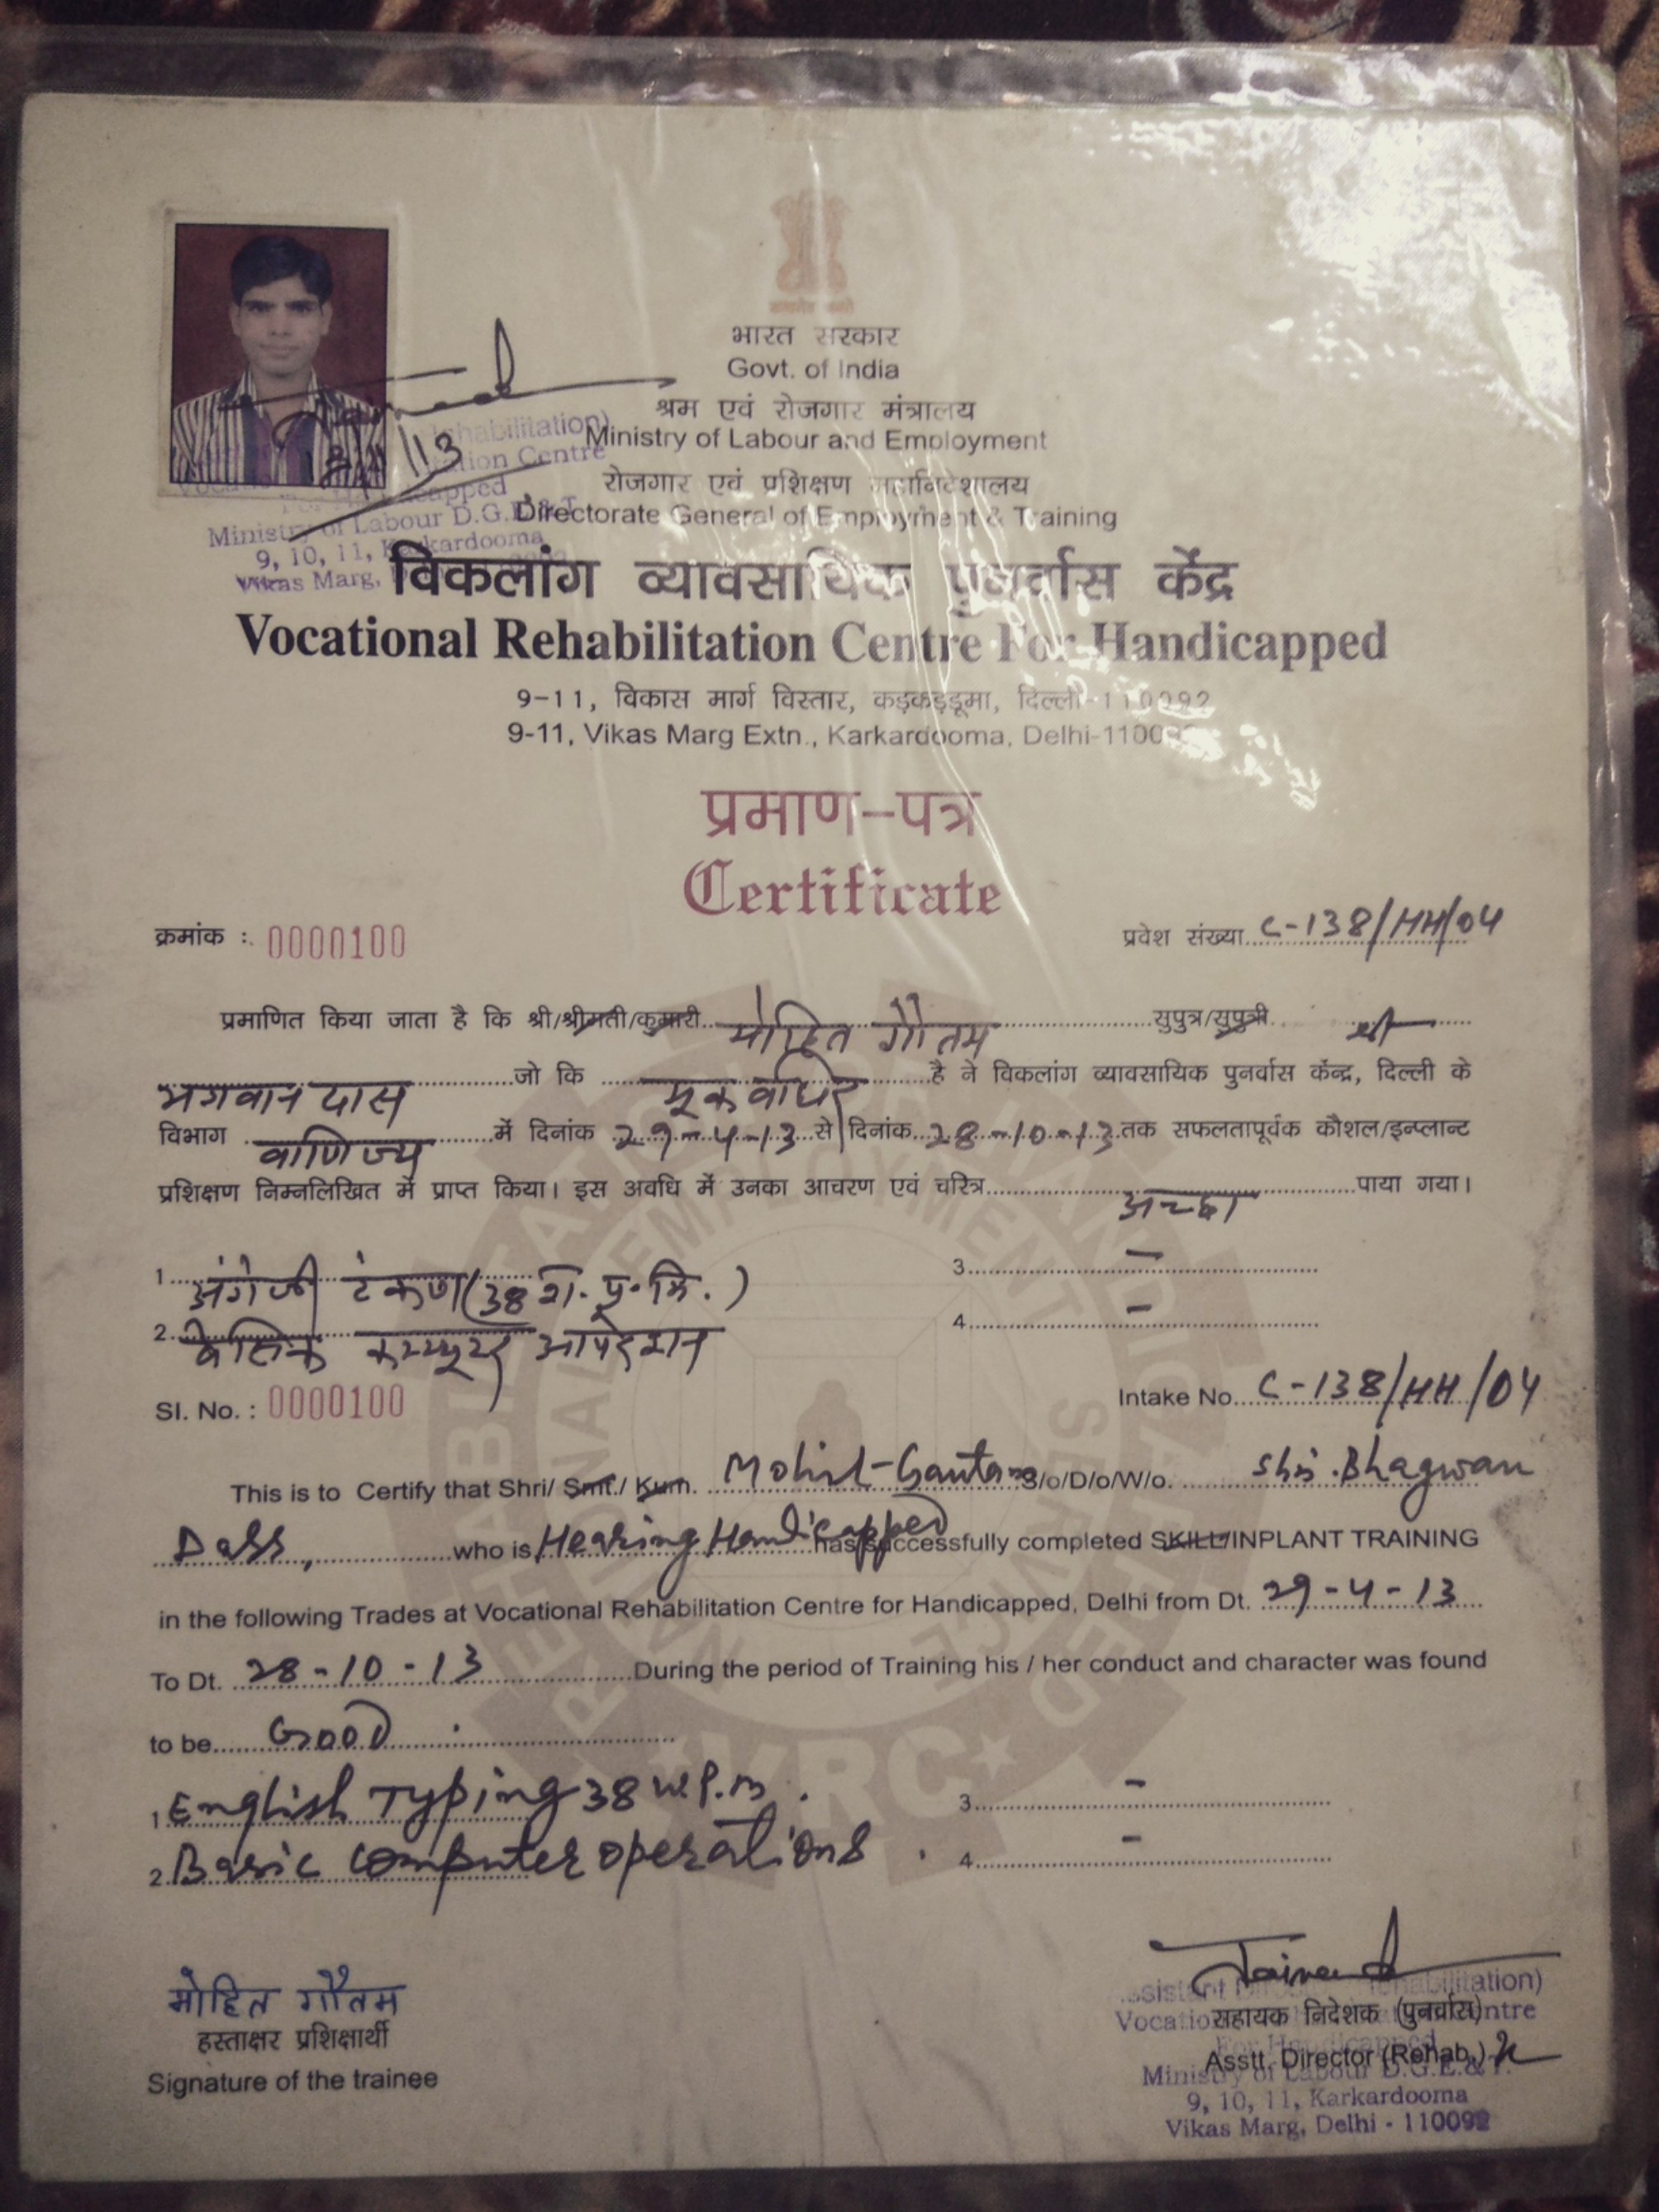 भारत सरकार
Govt. of India
श्रम एवं रोजगार मंत्रालय
Ministry of Labour and Employment
रोजगार एवं प्रशिक्षण महानिदेशालय
Directorate General of Employment & Training
विकलांग व्यावसायिक पुनर्वास केंद्र
Vocational Rehabilitation Centre For Handicapped
9-11, विकास मार्ग विस्तार, कड़कड़डूमा, दिल्ली-110092
9-11, Vikas Marg Extn., Karkardooma, Delhi-1100
habilitation)
tion Centre
capped
Ministry of Labour D.G.E.& T.
9, 10, 11, Karkardooma
Vikas Marg,
प्रमाण-पत्र
Certificate
क्रमांक : 0000100 प्रवेश संख्या C-138/HH/04
प्रमाणित किया जाता है कि श्री/श्रीमती/कुमारी मोहित गौतम सुपुत्र/सुपुत्री श्री
भगवान दास जो कि मूक वधिर है ने विकलांग व्यावसायिक पुनर्वास केंन्द्र, दिल्ली के
विभाग वाणिज्य में दिनांक 29-4-13 से दिनांक 28-10-13 तक सफलतापूर्वक कौशल/इन्प्लान्ट
प्रशिक्षण निम्नलिखित में प्राप्त किया। इस अवधि में उनका आचरण एवं चरित्र अच्छा पाया गया।
1 अंग्रेजी टंकण (38 श. प्र. मि.) 3 -
2 बेसिक कम्प्यूटर आपरेशन 4 -
Sl. No. : 0000100 Intake No. C-138/HH/04
This is to Certify that Shri/ Smt./ Kum. Mohit Gautam S/o/D/o/W/o. Shri. Bhagwan
Dass, who is Hearing Handicapped has successfully completed SKILL/INPLANT TRAINING
in the following Trades at Vocational Rehabilitation Centre for Handicapped, Delhi from Dt. 29-4-13
To Dt. 28-10-13 During the period of Training his / her conduct and character was found
to be Good
1 English Typing 38 w.p.m. 3 -
2 Basic Computer operations. 4 -
VRC
मोहित गौतम
हस्ताक्षर प्रशिक्षार्थी
Signature of the trainee
सहायक निदेशक (पुनर्वास)
Asstt. Director (Rehab.)
Ministry of Labour D.G.E.& T.
9, 10, 11, Karkardooma
Vikas Marg, Delhi - 110092